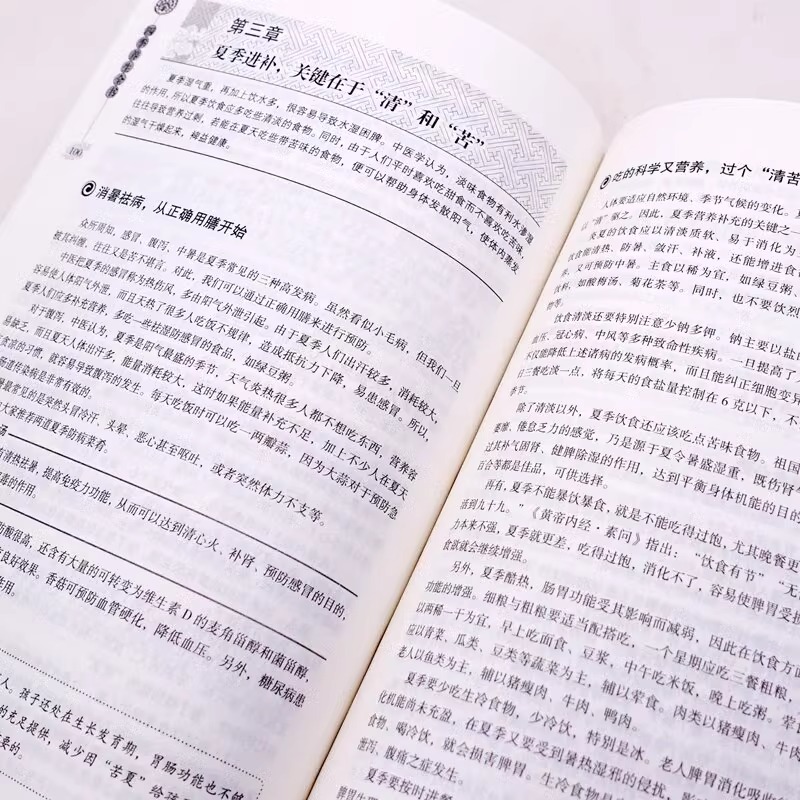 四季养生全书
100
第三章
夏季进补，关键在于“清”和“苦”
夏季湿气重，再加上饮水多，很容易导致水湿困脾。中医学认为，淡味食物有利水渗湿
的作用，所以夏季饮食应多吃些清淡的食物。同时，由于人们平时喜欢吃甜食而不喜欢吃苦味，
往往导致营养过剩，若能在夏天吃些带苦味的食物，便可以帮助身体发散阳气，使体内蓄发
的湿气干燥起来，裨益健康。
消暑祛病，从正确用膳开始
众所周知，感冒、腹泻、中暑是夏季常见的三种高发病。虽然看似小毛病，但我们一旦
被其纠缠，往往又是苦不堪言。对此，我们可以通过正确用膳来进行预防。
中医把夏季的感冒称为热伤风，多由阳气外泄引起。由于夏季人们出汗较多，消耗较大，
容易使人体阳气外泄，而且天热了很多人吃饭不规律，造成抵抗力下降，易患感冒。所以，
夏季人们应多补充营养，多吃一些祛湿防感冒的食品，如绿豆粥。
对于腹泻，中医认为，夏季是阳气最盛的季节，天气炎热很多人都不想吃东西，营养容
易缺乏，而且夏天人体出汗多，能量消耗较大，这时如果能量补充不足，加上不少人在夏天
食凉的习惯，就容易导致腹泻的发生。每天吃饭时可以吃一两瓣蒜，因为大蒜对于预防急
肠道传染病是非常有效的。
暑最常见的是突然头冒冷汗、头晕、恶心甚至呕吐，或者突然体力不支等。
大家推荐两道夏季防病菜肴。
汤
清热祛暑，提高免疫力功能，从而可以达到清心火、补肾、预防感冒的目的，
毒的作用。
酸很高，还含有大量的可转变为维生素 D 的麦角甾醇和菌甾醇，
良好效果。香菇可预防血管硬化，降低血压。另外，糖尿病患
作用。
人。孩子还处在生长发育期，胃肠功能也不够
的充足提供，减少因“苦夏”给孩
要的。
吃的科学又营养，过个“清苦
人体要适应自然环境、季节气候的变化。
以“清”驱之。因此，夏季营养补充的关键之一
炎夏的饮食应以清淡质软、易于消化为主
饮食能清热、防暑、敛汗、补液，还能增进食
，又可预防中暑。主食以稀为宜，如绿豆粥、
饮料，如酸梅汤、菊花茶等。同时，也不要饮烈
物等。
饮食清淡还要特别注意少钠多钾。钠主要以盐
血压、冠心病、中风等多种致命性疾病。一旦提高了
不仅能降低上述诸病的发病概率，而且能纠正细胞变异
在三餐吃淡一点，将每天的食盐量控制在 6 克以下，不
季节。
除了清淡以外，夏季饮食还应该吃点苦味食物。祖国
萎靡、倦怠乏力的感觉，乃是源于夏令暑盛湿重，既伤肾
过其补气固肾、健脾除湿的作用，达到平衡身体机能的目的
百合等都是佳品，可供选择。
再有，夏季不能暴饮暴食，就是不能吃得过饱，尤其晚餐更
活到九十九。”《黄帝内经·素问》指出：“饮食有节”“无
力本来不强，夏季就更差，吃得过饱，消化不了，容易使脾胃受损
食欲就会继续增强。
另外，夏季酷热，肠胃功能受其影响而减弱，因此在饮食方面
功能的增强。细粮与粗粮要适当配搭吃，一个星期应吃三餐粗粮，
以两稀一干为宜，早上吃面食、豆浆，中午吃米饭，晚上吃粥。荤
应以青菜、瓜类、豆类等蔬菜为主，辅以荤食。肉类以猪瘦肉、牛肉
老人以鱼类为主，辅以猪瘦肉、牛肉、鸭肉。
夏季要少吃生冷食物，少冷饮，特别是冰。老人脾胃消化吸收
化机能尚未充盈，在夏季又要受到暑热湿邪的侵扰，影
食物、喝冷饮，就会损害脾胃。生冷食物是
泄泻、腹痛之症发生。
夏季要按时进餐